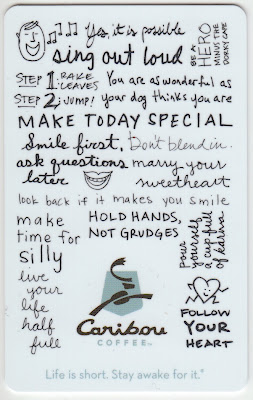 Yes, it is possible
sing out loud
BE A
HERO
MINUS THE
DORKY CAPE
STEP 1: RAKE LEAVES
STEP 2: JUMP!
You are as wonderful as
your dog thinks you are
MAKE TODAY SPECIAL
Smile first,
ask questions
later
Don't blend in.
marry your
sweetheart
look back if it makes you smile
make
time for
silly
HOLD HANDS,
NOT GRUDGES
pour
yourself
a cup full
of karma
live
your
life
half
full
Caribou
COFFEE™
FOLLOW
YOUR
HEART
Life is short. Stay awake for it.®